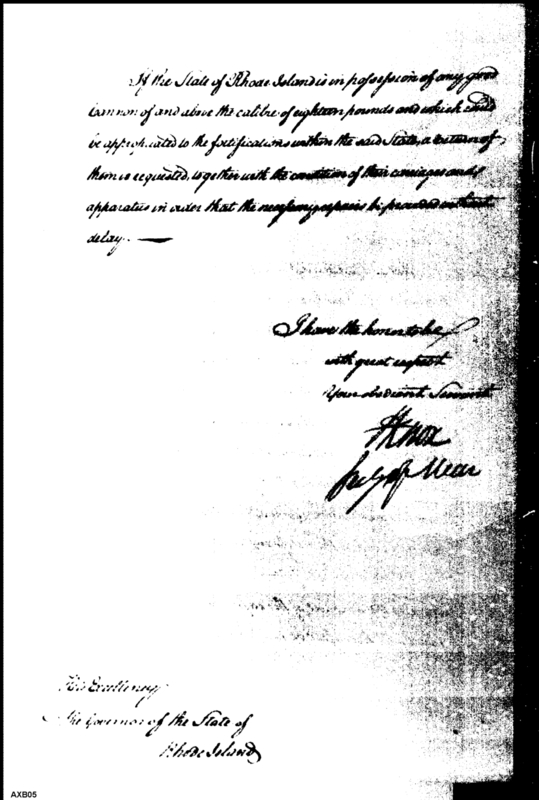 If the State of Rhode Island is in possession of any good
Cannon of and above the calibre of eighteen pounds and which could
be appropriated to the fortifications within the said State, a return of
them is requested, together with the condition of their carriages and
apparatus in order that the necessary repairs be provided without
delay. —
I have the honor to be
with great respect
Your obedient Servant
H Knox
Secy of War
His Excellency
The Governor of the State of
Rhode Island
AXB05